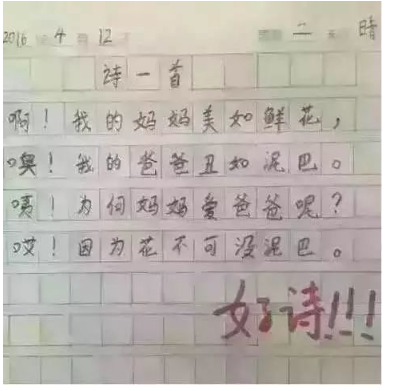 2016 年 4 月 12 日 星期 二 晴
诗一首
啊！我的妈妈美如鲜花，
噢！我的爸爸丑如泥巴。
咦！为何妈妈爱爸爸呢？
哎！因为花不可没泥巴。
好诗!!!